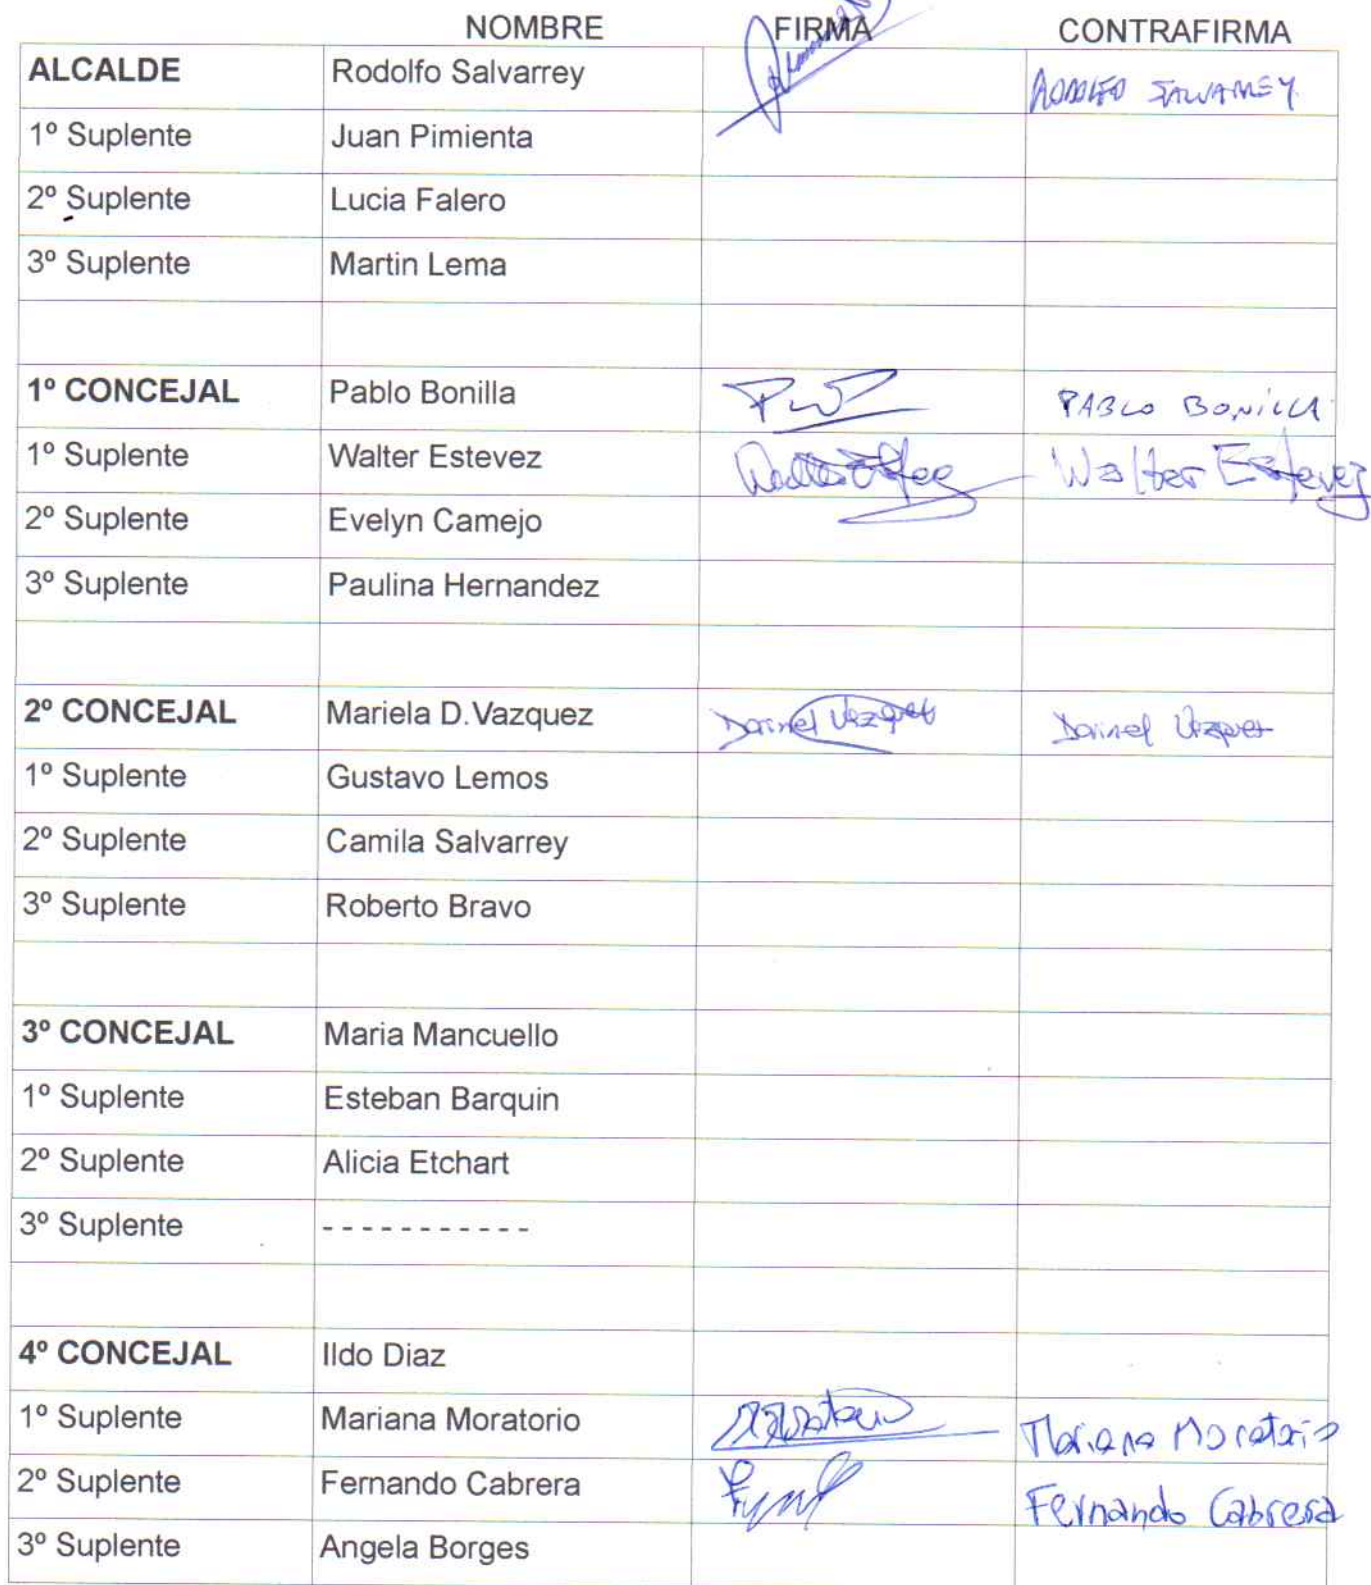 NOMBRE FIRMA CONTRAFIRMA
ALCALDE Rodolfo Salvarrey RODOLFO SALVARREY
1º Suplente Juan Pimienta
2º Suplente Lucia Falero
3º Suplente Martin Lema
1º CONCEJAL Pablo Bonilla PABLO BONILLA
1º Suplente Walter Estevez Walter Estevez
2º Suplente Evelyn Camejo
3º Suplente Paulina Hernandez
2º CONCEJAL Mariela D.Vazquez Vazquez Vazquez
1º Suplente Gustavo Lemos
2º Suplente Camila Salvarrey
3º Suplente Roberto Bravo
3º CONCEJAL Maria Mancuello
1º Suplente Esteban Barquin
2º Suplente Alicia Etchart
3º Suplente - - - - - - - - - - -
4º CONCEJAL Ildo Diaz
1º Suplente Mariana Moratorio Mariana Moratorio
2º Suplente Fernando Cabrera Fernando Cabrera
3º Suplente Angela Borges